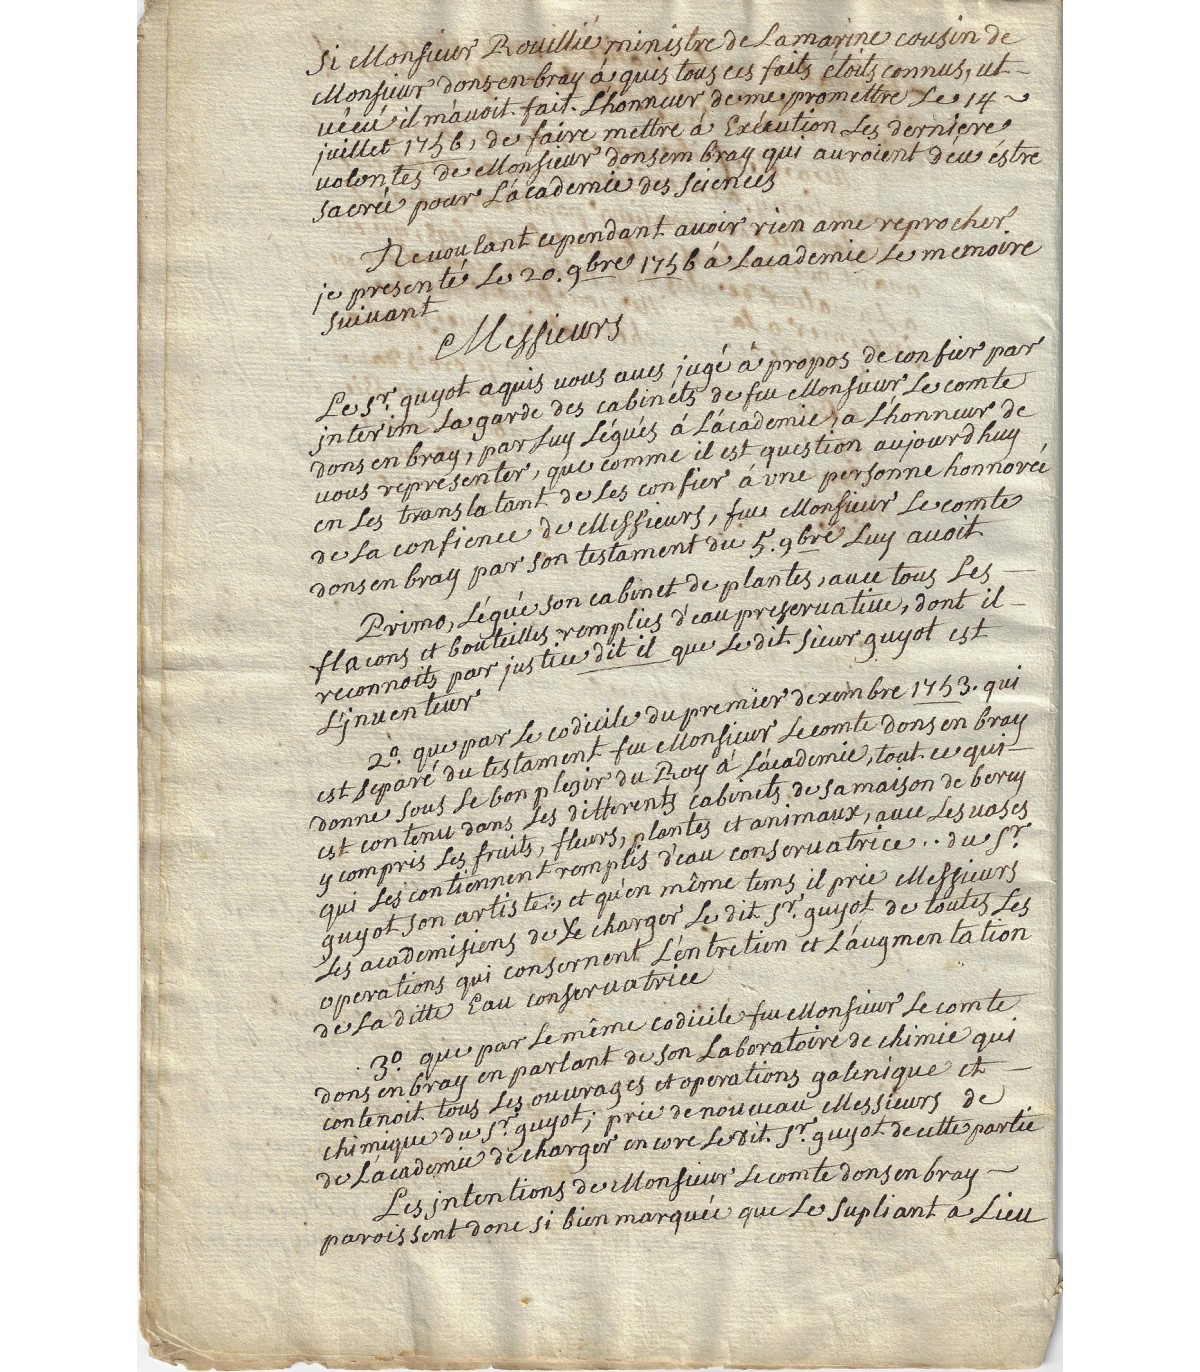 Si Monsieur Rouillié ministre de Lamarine cousin de
Monsieur donsenbray á quis tous ces faits étoits connus, ut —
uécú il mávoit fait Lhonneur de me promettre Le 14 ~
juillet 1756, de faire mettre á Exécution Les derniere
volontes de Monsieur donsem bray qui auroient déu éstre
sacrée pour L'académie des sciences
Ne voulant cependant avoir rien ame reprocher
je presenté Le 20. 9bre 1756 á Lacademie Le memoire
suivant
Messieurs
Le Sr. guyot aquis vous aves jugé á propos de confier par
jnterim La garde des cabinéts de feu Monsieur Le comte
donsenbray, par Luy Légués á L'académie, a L'honneur de
vous représenter, que comme il est question aujourdhuy
en Les translatant de Les confier á une personne honnorée
de La confience de Messieurs, feu Monsieur Le comte
donsenbray par son testament du 5. 9bre Luy avoit
Primo, Légué son cabinet de plantes, avec tous Les —
flacons et bouteilles remplies d'eau preservative, dont il —
reconnoits par justice dit il que Le dit Sieur guyot est
L'jnventeur
2o. que par Le codicile du premier dexembre 1753. qui
est separé du testament feu Monsieur Le comte donsenbray
donne sous Le bon plesir du Roy á L'académie, tout ce qui —
est contenu dans Les differents cabinets de samaison de bercy
y compris Les fruits, fleurs, plantes et animaux, avec Les vases
qui Les contiennent remplis d'eau conservatrice .. du Sr.
guyot son artiste, et qu'en même tems il prie Messieurs
Les academisiens de charger Le dit Sr. guyot de toutes Les
operations qui consernent L'éntretien et L'augmentation
de La ditte Eau conservatrice
3o. que par Le même codicile feu Monsieur Le comte
donsenbray en parlant de son Laboratoire de chimie qui
contenoit tous Les ouvrages et operations galenique et —
chimique du Sr. guyot; prie denouveau Messieurs de
de L'academie de charger encore Le dit Sr. guyot de cette partie
Les jntentions de Monsieur Le comte donsenbray —
paroissent donc si bien marquée que Le supliant a Lieu